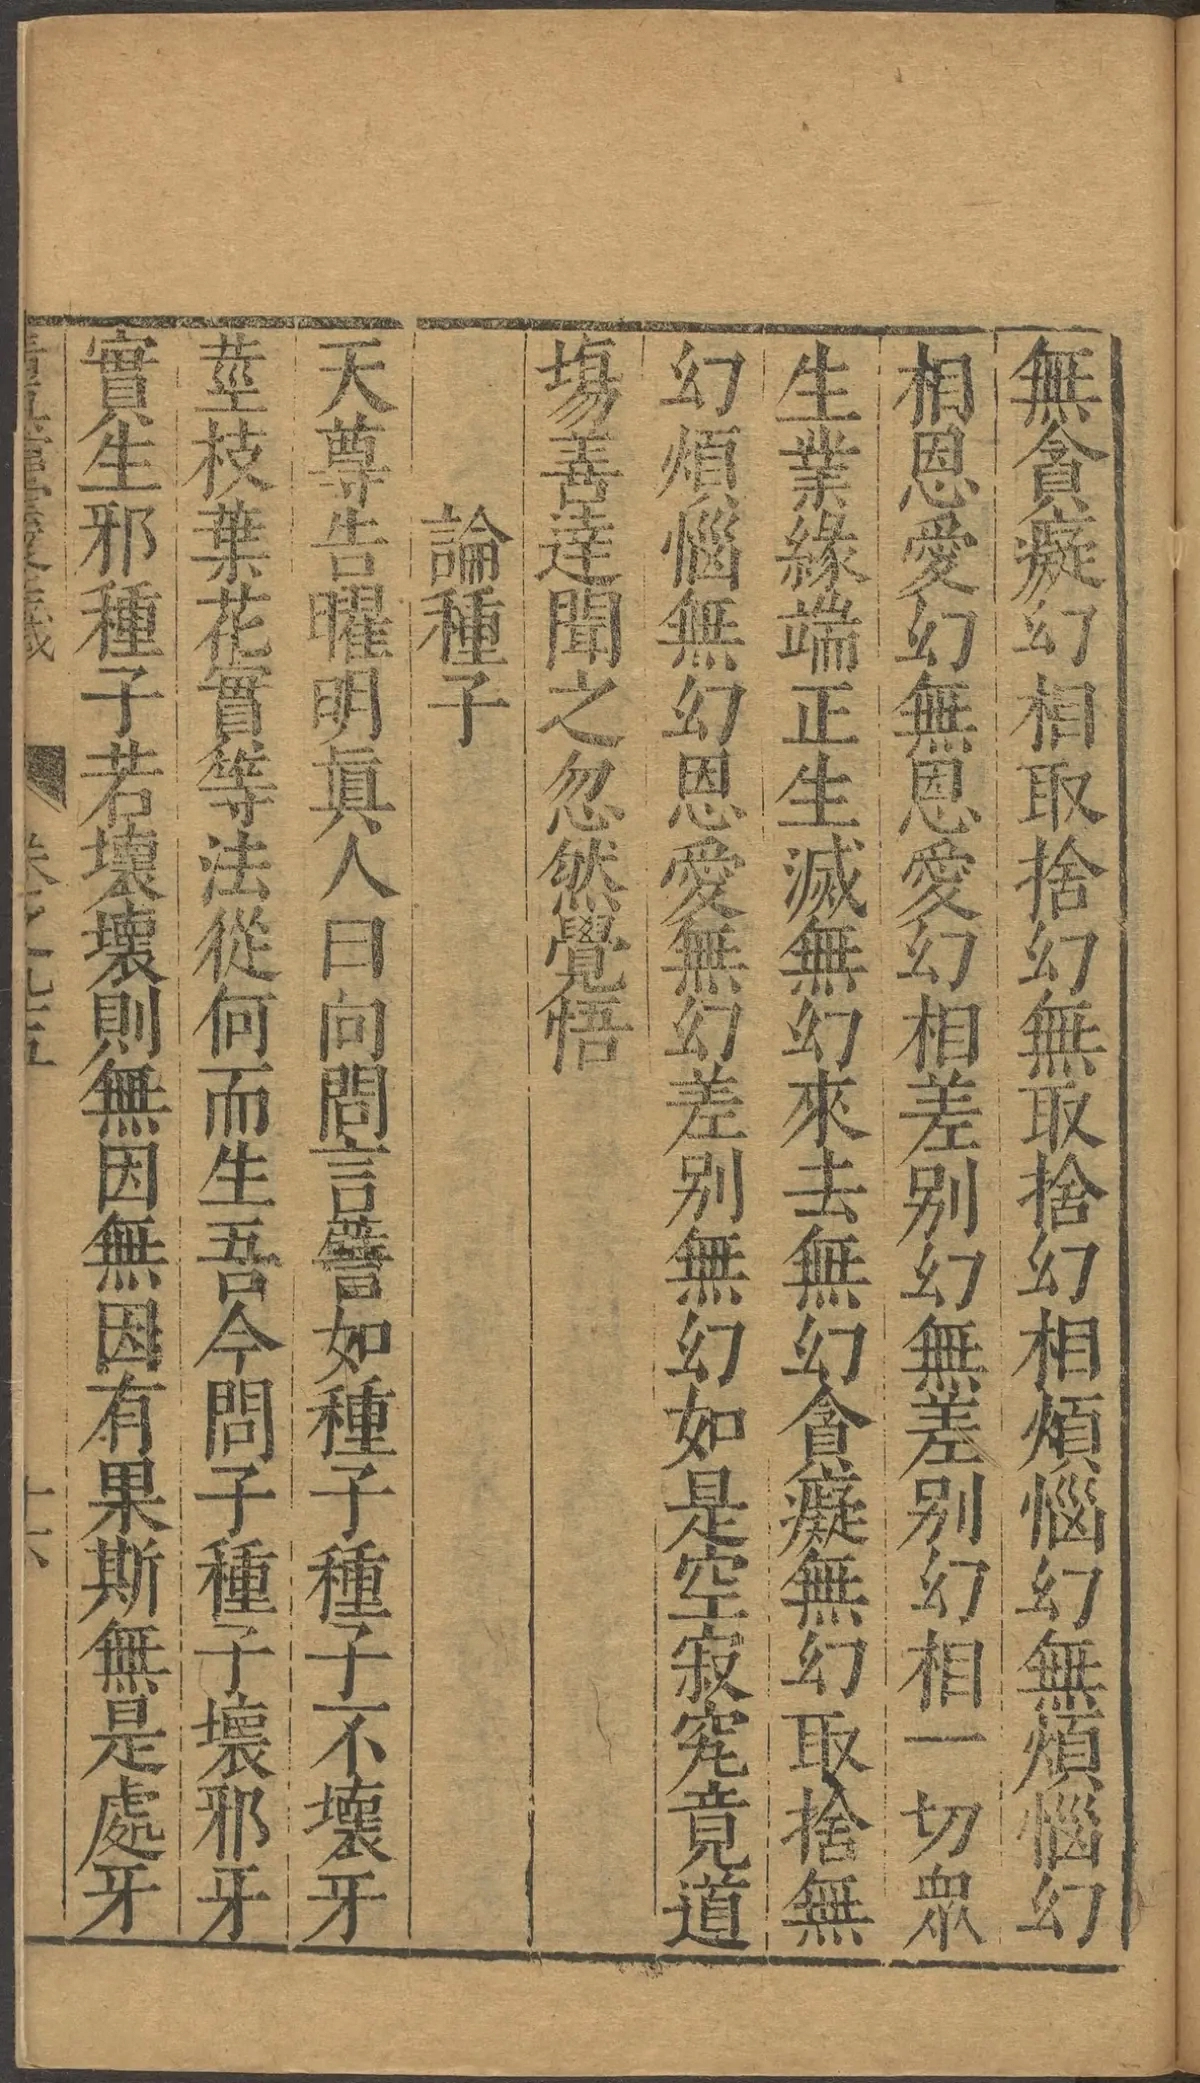 無貪癡幻相取捨幻無取捨幻相煩惱幻無煩惱幻
相恩愛幻無恩愛幻相差別幻無差別幻相一切衆
生業緣端正生滅無幻來去無幻貪癡無幻取捨無
幻煩惱無幻恩愛無幻差別無幻如是空寂究竟道
塲善達聞之忽然覺悟
論種子
天尊告曜明眞人曰向問言譬如種子種子不壞牙
莖枝葉花實等法從何而生吾今問子種子壞邪牙
實生邪種子若壞壞則無因無因有果斯無是處牙
十六